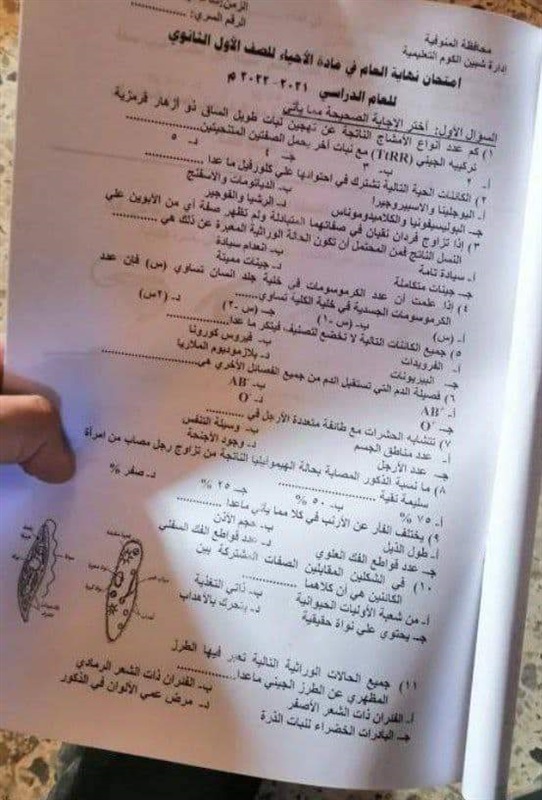 محافظة المنوفية
إدارة شبين الكوم التعليمية
الرقم السري: ..............
امتحان نهاية العام في مادة الأحياء للصف الأول الثانوي
للعام الدراسي ٢٠٢١-٢٠٢٢ م
السؤال الأول: أختر الإجابة الصحيحة مما يأتي
١) كم عدد أنواع الأمشاج الناتجة عن تهجين نبات طويل الساق ذو أزهار قرمزية
تركيبه الجيني (TtRR) مع نبات آخر يحمل الصفتين المتنحيتين..............
أ- ٢ ب- ٣ جـ- ٤ د- ٥
٢) الكائنات الحية التالية تشترك في احتوائها علي كلورفيل ما عدا..............
أ- اليوجلينا والاسبيروجيرا ب- الدياتومات والاسفنج
جـ- البوليسيفونيا والكلاميدوموناس د- الرشيا والفوجير
٣) إذا تزاوج فردان نقيان في صفاتهما المتبادلة ولم تظهر صفة أي من الأبوين علي
النسل الناتج فمن المحتمل أن تكون الحالة الوراثية المعبرة عن ذلك هي..............
أ- سيادة تامة ب- انعدام سيادة
جـ- جينات متكاملة د- جينات مميتة
٤) إذا علمت أن عدد الكرموسومات في خلية جلد انسان تساوي (س) فإن عدد
الكرموسومات الجسدية في خلية الكلية تساوي..............
أ- (س) ب- (س-١) جـ- (س-٢) د- (٢س)
٥) جميع الكائنات التالية لا تخضع لتصنيف فيتكر ما عدا..............
أ- الفرويدات ب- فيروس كورونا
جـ- البريونات د- بلازموديوم الملاريا
٦) فصيلة الدم التي تستقبل الدم من جميع الفصائل الأخري هي..............
٧) تتشابه الحشرات مع طائفة متعددة الأرجل في ..............
أ- عدد مناطق الجسم ب- وسيلة التنفس
جـ- عدد الأرجل د- وجود الأجنحة
٨) ما نسبة الذكور المصابة بحالة الهيموفيليا الناتجة من تزاوج رجل مصاب من امرأة
سليمة نقية ..............
أ- ٧٥ % ب- ٥٠ % جـ- ٢٥ % د- صفر %
٩) يختلف الفار عن الأرنب في كلا مما يأتي ماعدا..............
أ- طول الذيل ب- حجم الأذن
جـ- عدد قواطع الفك العلوي د- عدد قواطع الفك السفلي
١٠) في الشكلين المقابلين الصفات المشتركة بين
الكائنين هي أن كلاهما ..............
أ- من شعبة الأوليات الحيوانية ب- ذاتي التغذية
جـ- يحتوي علي نواة حقيقية د- يتحرك بالأهداب
١١) جميع الحالات الوراثية التالية تعبر فيها الطرز
المظهري عن الطرز الجيني ماعدا..............
أ- الفئران ذات الشعر الأصفر ب- الفئران ذات الشعر الرمادي
جـ- البادرات الخضراء لنبات الذرة د- مرض عمي الألوان في الذكور